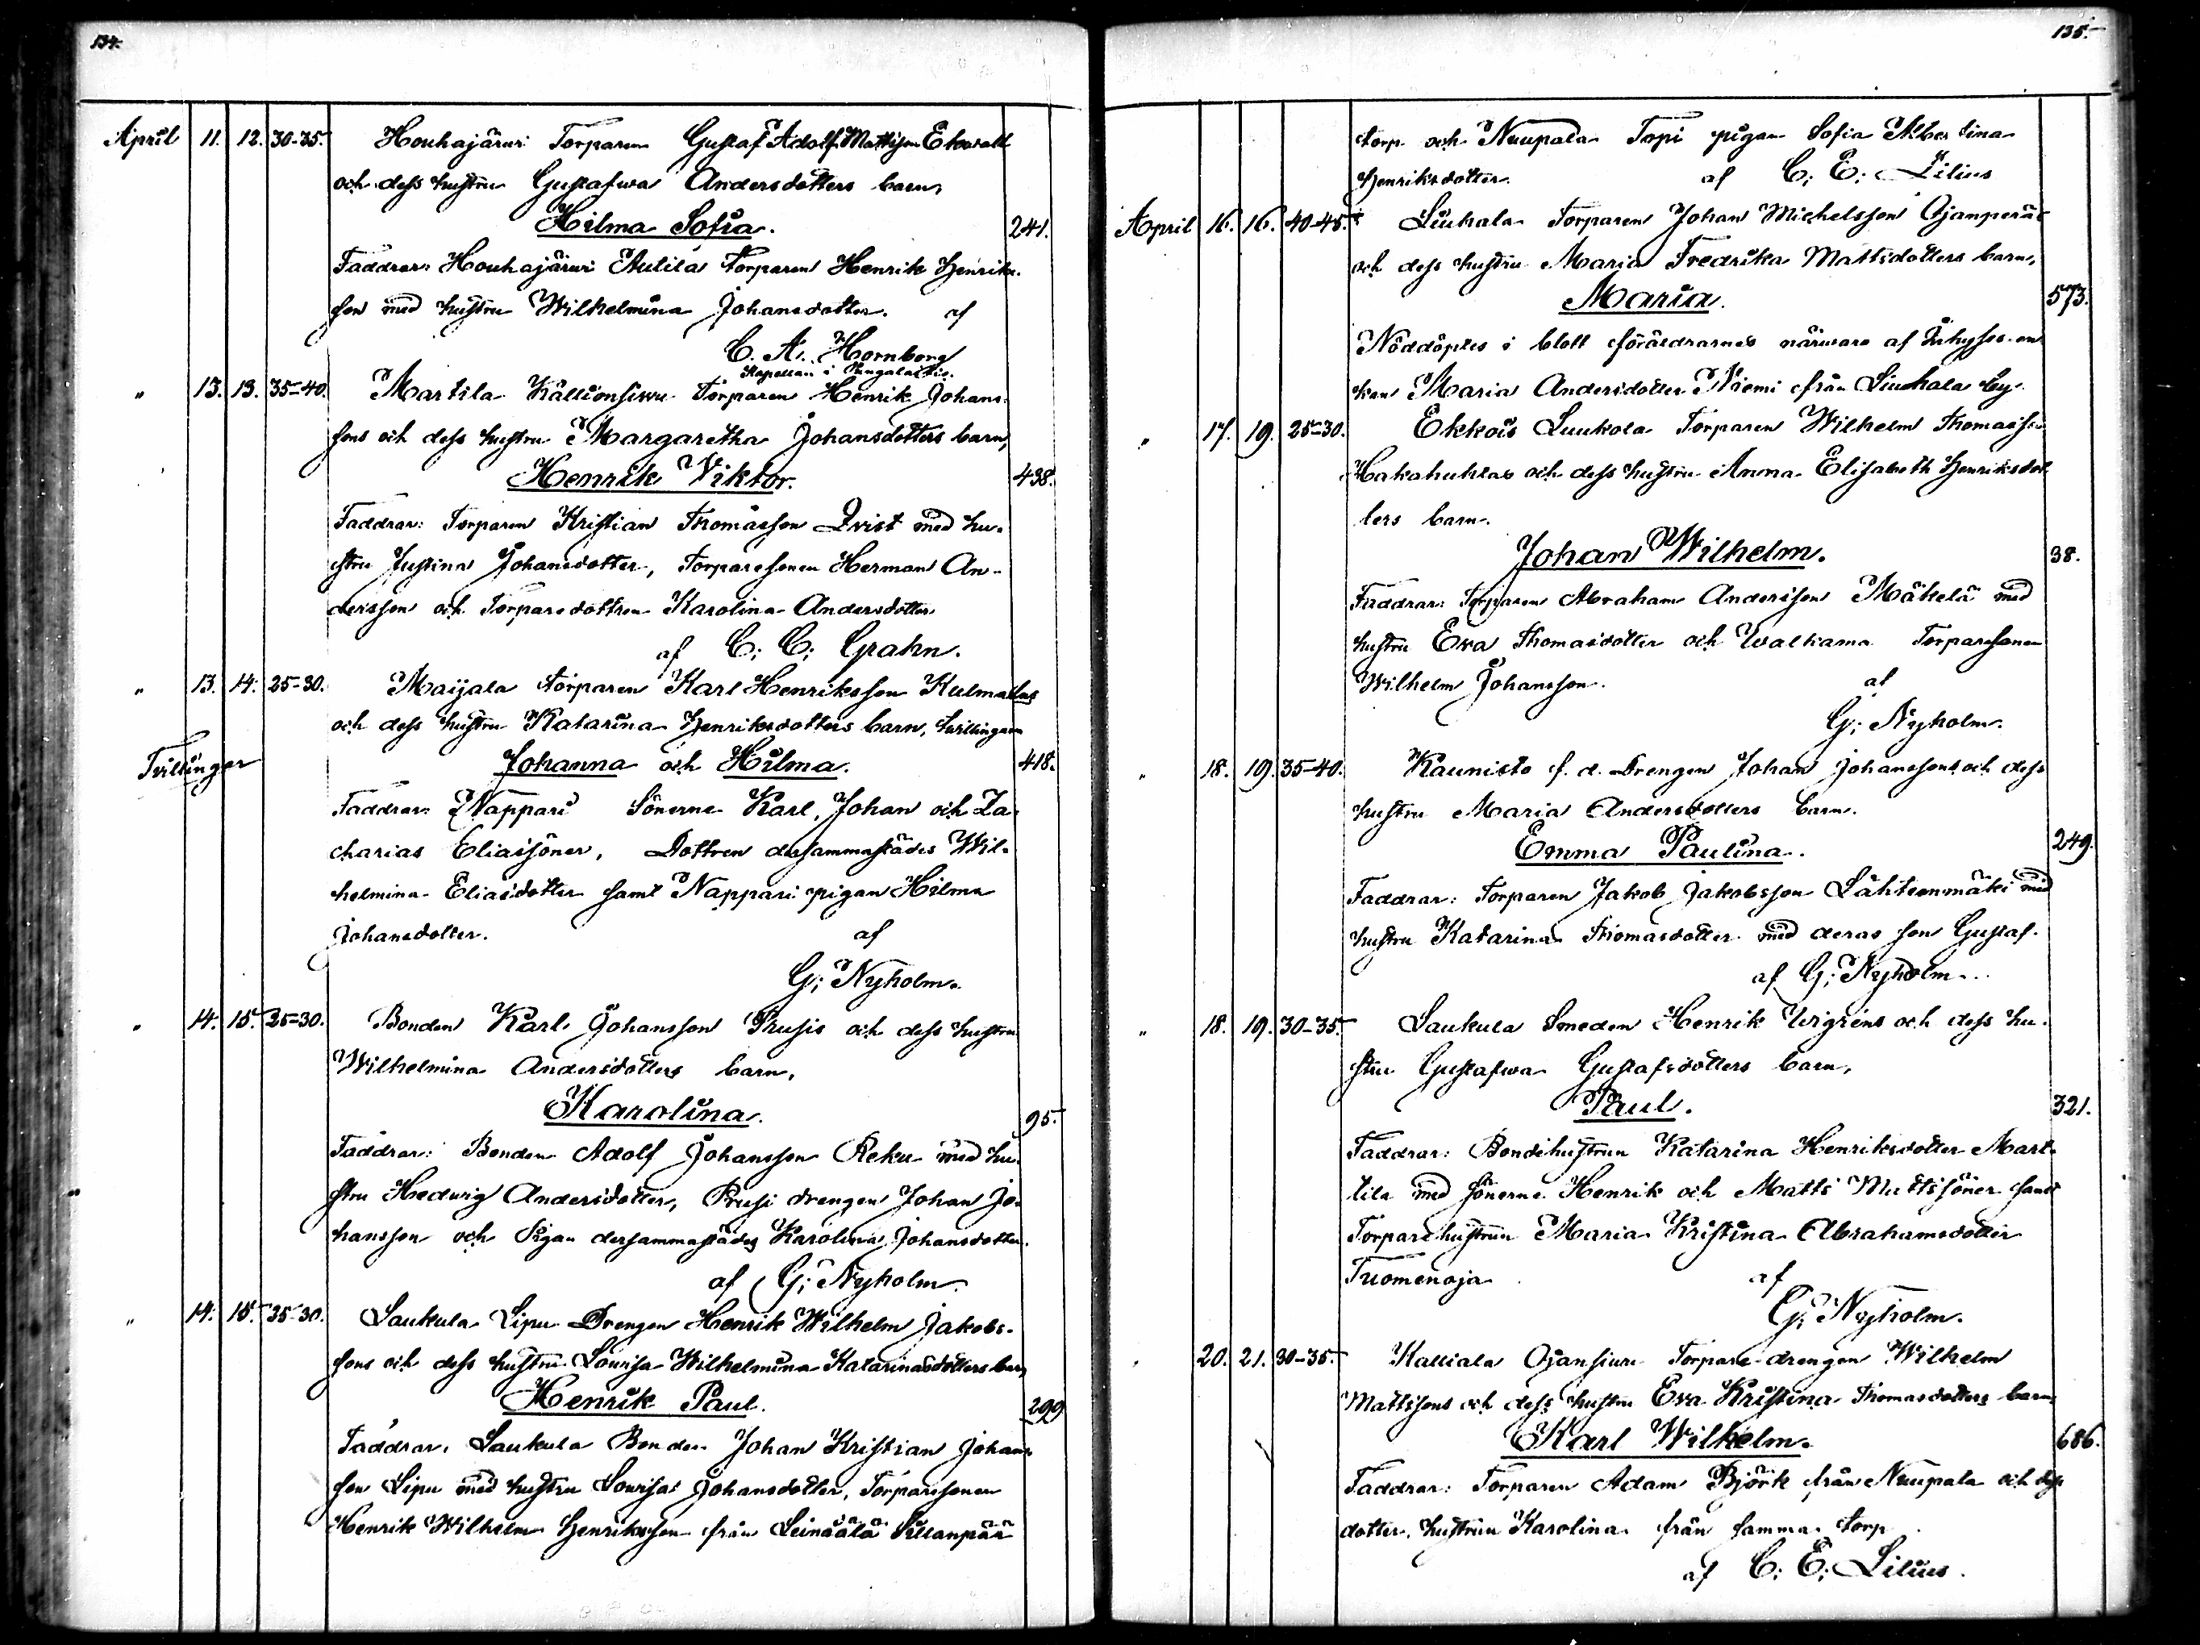 134.
April 11. 12. 30-35. Houhajärvi Torparen Gustaf Adolf Mattsson Ekwall
och dess hustru Gustafwa Andersdotters barn,
Hilma Sofia. 241.
Faddrar: Houhajärvi Autila Torparen Henrik Henriks-
son med hustru Wilhelmina Johansdotter. af
C. A. Hornborg
Kapellan i Pungalaitio.
" 13. 13. 35-40. Martila Kallionsiwu Torparen Henrik Johans-
sons och dess hustru Margaretha Johansdotters barn,
Henrik Viktor. 438.
Faddrar: Torparen Kristian Thomasson Qvist med hu-
stru Justina Johansdotter, Torparesonen Herman An-
dersson och Torparedottren Karolina Andersdotter
af C: C: Grahn.
" 13. 14. 25-30. Maijala torparen Karl Henriksson Kulmalas
och dess hustru Katarina Henriksdotters barn, twillingarn
Tvillinger Johanna och Hilma. 418.
Faddrar: Nappari Sönerne Karl, Johan och Za-
charias Eliassöner, Dottren dersammastädes Wil-
helmina Eliasdotter samt Nappari pigan Hilma
Johansdotter. af
G: Nyholm.
" 14. 15. 25-30. Bonden Karl Johansson Prusis och dess hustru
Wilhelmina Andersdotters barn,
Karolina. 95.
Faddrar: Bonden Adolf Johansson Reku med hu-
stru Hedwig Andersdotter, Prusi drengen Johan Jo-
hansson och Pigan dersammastädes Karolina Johansdotter.
af G: Nyholm.
" 14. 15. 25-30. Laukula Lipu Drengen Henrik Wilhelm Jakobs-
sons och dess hustru Lovisa Wilhelmina Katarinasdotters barn,
Henrik Paul. 299
Faddrar: Laukula Bonden Johan Kristian Johans-
son Lipu med hustru Lovisa Johansdotter, Torparesonen
Henrik Wilhelm Henriksson från Leinälä Sillanpää
135.
torp och Nuupala Topi pigan Sofia Albertina
Henriksdotter. af C: E: Lilius
April 16. 16. 40-45. Liuhala Torparen Johan Michelsson Ojanperäs
och dess hustru Maria Fredrika Mattsdotters barn,
Maria. 573.
Nöddöptes i blott föräldrarnes närwaro af Inhyses en-
kan Maria Andersdotter Niemi från Liuhala by.
" 17. 19. 25-30. Ekkois Luukola Torparen Wilhelm Thomasson
Hakahuhtas och dess hustru Anna Elisabeth Henriksdot-
ters barn.
Johan Wilhelm. 38.
Faddrar: Torparen Abraham Andersson Mäkelä med
hustru Eva Thomasdotter och Walkama Torparesonen
Wilhelm Johansson. af
G: Nyholm.
" 18. 19. 35-40. Kaunisto f. d. Drengen Johan Johanssons och dess
hustru Maria Andersdotters barn.
Emma Paulina. 249.
Faddrar: Torparen Jakob Jakobsson Lähteenmäki med
hustru Katarina Thomasdotter med deras son Gustaf.
af G: Nyholm.
" 18. 19. 30-35. Laukula Smeden Henrik Wigréns och dess hu-
stru Gustafwa Gustafsdotters barn,
Paul. 321.
Faddrar: Bondehustrun Katarina Henriksdotter Mart-
tila med sönerne Henrik och Matts Mattssöner samt
Torparehustrun Maria Kristina Abrahamsdotter
Tuomenoja af
G: Nyholm.
" 20. 21. 30-35. Kalliala Ojansiwu Torpare-drengen Wilhelm
Mattssons och dess hustru Eva Kristina Thomasdotters barn,
Karl Wilhelm. 686.
Faddrar: Torparen Adam Björk från Nuupala och dess
dotter, hustrun Karolina från samma torp
af C: E: Lilius.